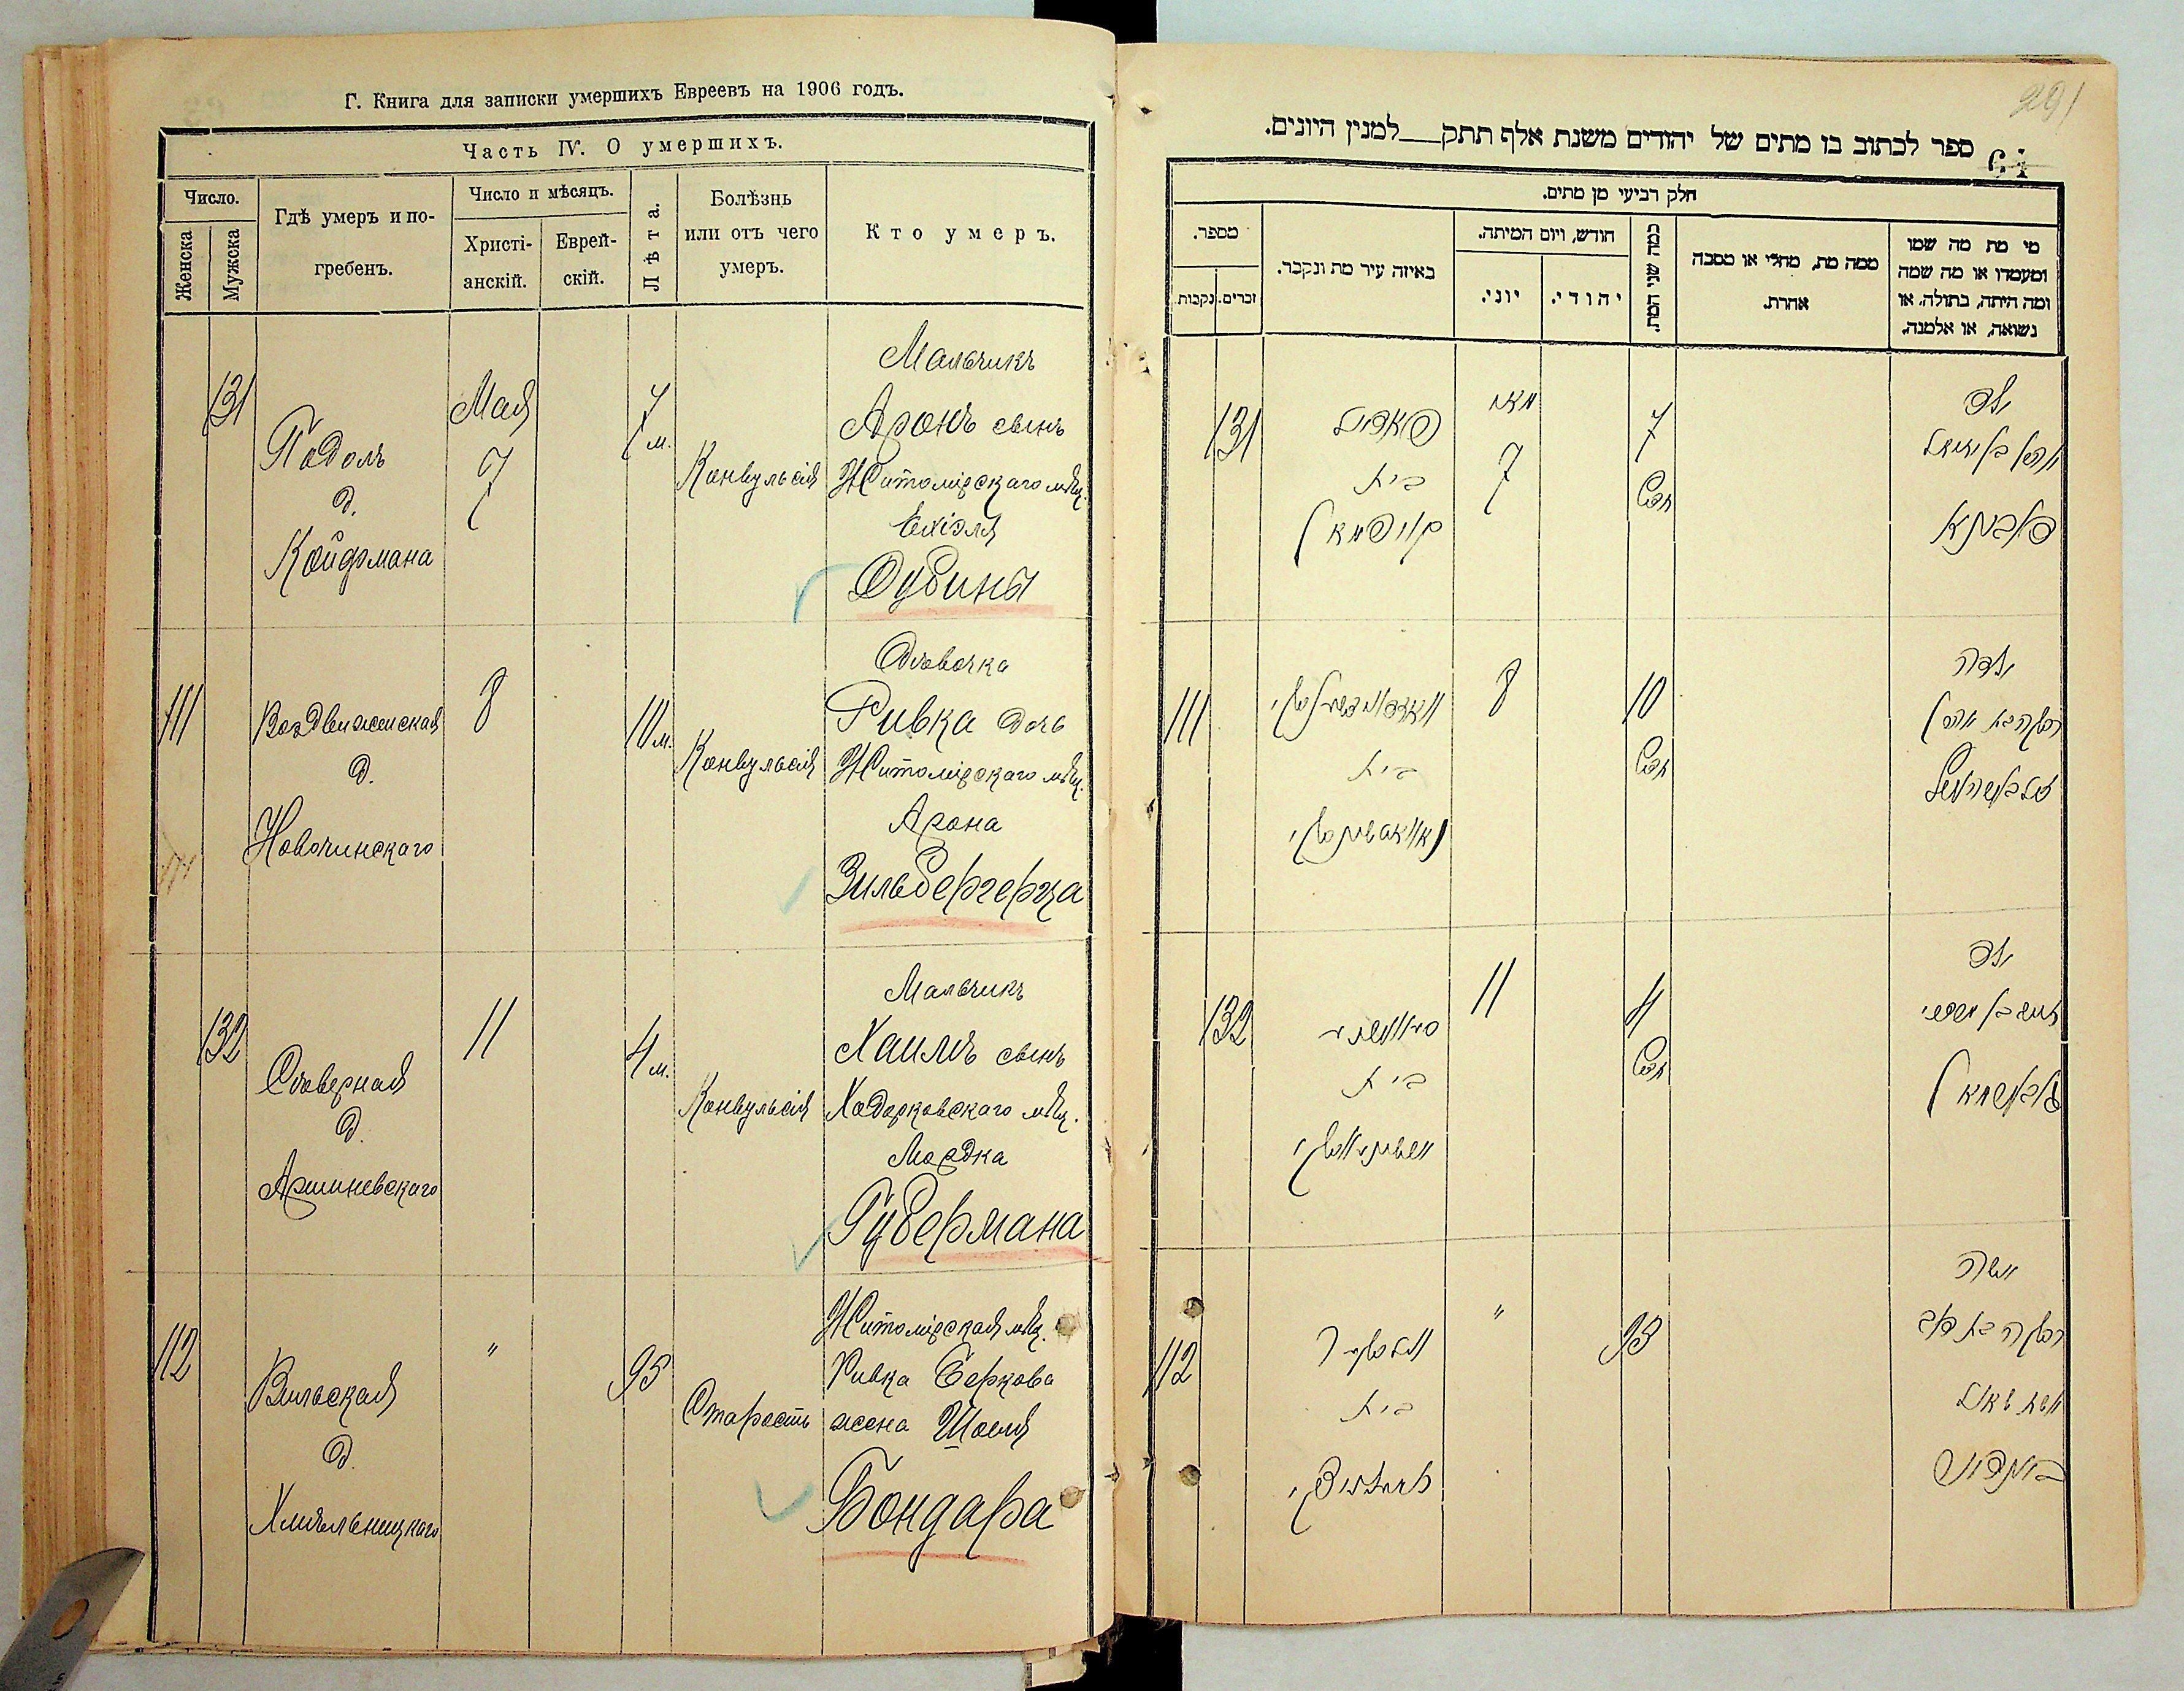 Г. Книга для записки умершихъ Евреевъ на 1906 годъ.
Часть IV. О умершихъ.
Число.
Женска
Мужска
Гдѣ умеръ и по-
гребенъ.
Число и мѣсяцъ.
Христі-
анскій.
Еврей-
скій.
Лѣта.
Болѣзнь
или отъ чего
умеръ.
Кто умеръ.
131
Подолъ
д.
Койфмана
Мая
7
7 м.
Конвульсія
Мальчикъ
Аронъ сынъ
Житомірскаго мѣщ.
Ехіэля
Дубины
111
Воздвиженская
д.
Новочинскаго
8
10 м.
Конвульсія
Дѣвочка
Ривка дочь
Житомірскаго мѣщ.
Арона
Зильбергерца
132
Сѣверная
д.
11
4 м.
Конвульсія
Мальчикъ
Хаимъ сынъ
Ходорковскаго мѣщ.
Мордка
Губермана
112
Вильская
д.
Хмѣльницкаго
"
95
Старость
Житомірская мѣщ.
Ривка Беркова
жена Шоеля
Бондара
291
ספר לכתוב בו מתים של יהודים משנת אלף תתק__למנין היונים.
חלק רביעי מן מתים.
מי מת מה שמו
ומעמדו או מה שמה
ומה היתה, בתולה, או
נשואה, או אלמנה.
ממה מת, מחלי או מסבה
אחרת.
כמה שני המת.
חודש, ויום המיתה.
יהודי.
יוני.
באיזה עיר מת ונקבר.
מספר.
זכרים.
נקבות.
ילד
דובינא
7
חדש
מאי
7
פאדאל
בית
קויפמאן
131
ילדה
רבקה בת אהרן
זילבערהערץ
10
חדש
8
בית
111
ילד
גוברמאן
4
חדש
11
בית
132
אשה
רבקה בת דוב
95
"
בית
112